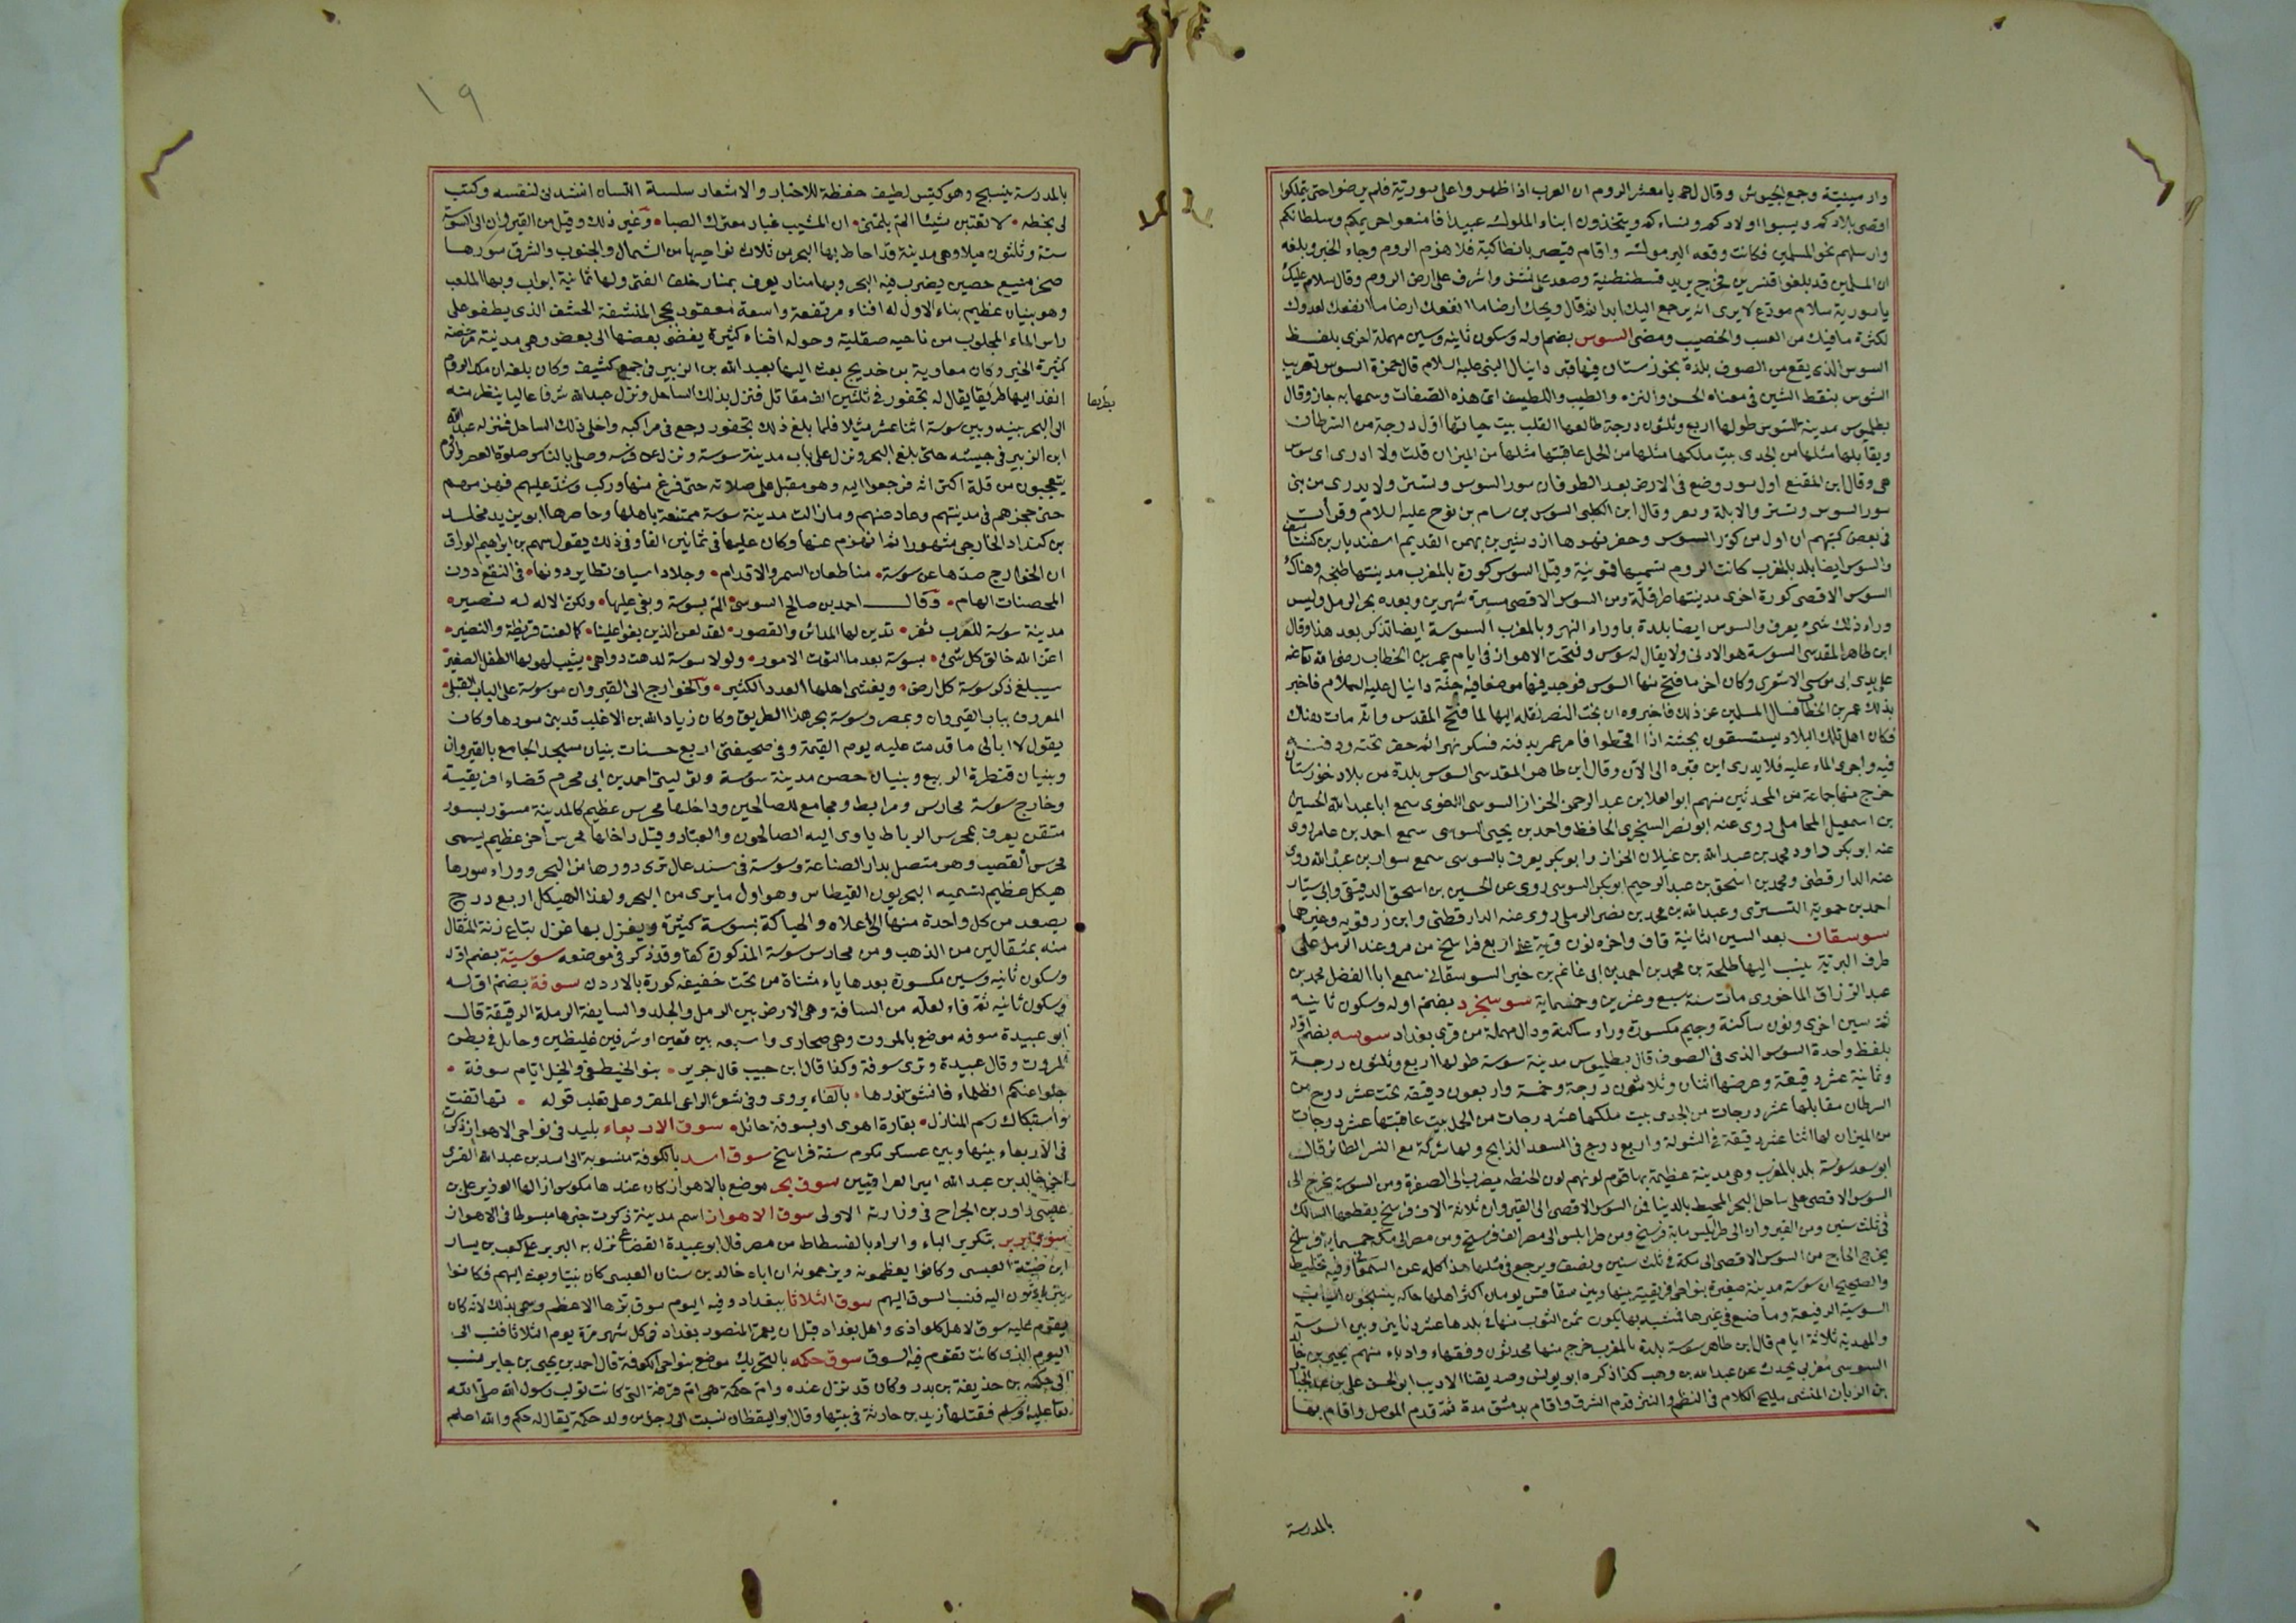 وارمينية وجمع الجيوش وقال لهم يا معشر الروم ان العرب اذا ظهروا على سورية فلم يرضوا حتى يتملكوا
اقصى بلادكم ويسبوا اولادكم ونساءكم ويتخذون ابناء الملوك عبيدا فامنعوا حريمكم وسلطانكم
وارسلهم نحو المسلمين فكانت وقعة اليرموك واقام قيصر بانطاكية فلما هزم الروم وجاء الخبر وبلغه
ان المسلمين قد بلغوا قنسرين فخرج يريد قسطنطنية وصعد على نشز واشرف على ارض الروم وقال سلام عليك
يا سورية سلام مودع لا يرى انه يرجع اليك ابدا ثم قال ويحك ارضا ما انفعك ارضا ما انفعك لعدوك
لكثرة ما فيك من العشب والخصيب ومضى السوس بضم اوله وسكون ثانيه وسين مهملة اخرى بلفظ
السوس الذي يقع من الصوف بلدة بخوزستان فيها قبر دانيال النبي عليه السلام قال حمزة السوس تعريب
الشوس بنقط الشين في معناه الحسن والنزه والطيب واللطيف اي هذه الصفات وسمها به جاز وقال
بطلميوس مدينة السوس طولها اربع وثلثون درجة طالعها القلب بيت حياتها اول درجة من السرطان
ويقابلها مثلها من الجدي بيت ملكها مثلها من الحمل عاقبتها مثلها من الميزان قلت ولا ادري اي سوس
هي وقال ابن المقفع اول سور وضع في الارض بعد الطوفان سور السوس وتستر ولا يدرى من بنى
سور السوس وتستر والابلة وقال ابن الكلبي السوس بن سام بن نوح عليه السلام وقرأت
في بعض كتبهم ان اول من كور السوس وحفر نهرها اردشير بن بهمن القديم اسفنديار بن كشتاسف
والسوس ايضا بلد بالمغرب كانت الروم تسميها قمونية وقيل السوس كورة بالمغرب مدينتها طنجة وهناك
السوس الاقصى كورة اخرى مدينتها طرقلة ومن السوس الاقصى مسيرة شهرين وبعده بحر الرمل وليس
وراء ذلك شيء يعرف والسوس ايضا بلدة بما وراء النهر وبالمغرب السوسة ايضا تذكر بعد هذا وقال
ابن طاهر المقدسي السوسة هو الادنى ولا يقال له سوس وفتحت الاهواز في ايام عمر بن الخطاب رضي الله تعالى عنه
على يدي ابي موسى الاشعري وكان اخر ما فتح منها السوس فوجد فيها موضعا فيه جثة دانيال عليه السلام فاخبر
بذلك عمر بن الخطاب فسال المسلمين عن ذلك فاخبروه ان بخت النصر نقله اليها لما فتح المقدس وانه مات هناك
فكان اهل تلك البلاد يستسقون بجثته اذا اقحطوا فامر عمر بدفنه فسكر نهرا ثم حفر تحته ودفنه
فيه واجرى الماء عليه فلا يدرى اين قبره الى الآن وقال ابن طاهر المقدسي السوس بلدة من بلاد خوزستان
خرج منها جماعة من المحدثين منهم ابو العلا بن عبد الرحمن الخزاز السوسي اللغوي سمع ابا عبد الله الحسين
بن اسمعيل المحاملي روى عنه ابو نصر السجزي الحافظ واحمد بن يحيى السوسي سمع احمد بن عامر روى
عنه ابو بكر داود محمد بن عبد الله بن غيلان الخزاز وابو بكر يعرف بالسوسي سمع سوار بن عبد الله روى
عنه الدارقطني ومحمد بن اسحق بن عبد الرحيم ابو بكر السوسي روى عن الحسين بن اسحق الدقيقي وابي سيار
احمد بن حموية التستري وعبد الله بن محمد بن نصر الرملي روى عنه الدارقطني وابن زرقويه وغيرهما
سوسقان بعد السين الثانية قاف واخره نون قرية على اربع فراسخ من مرو عند الرمل على
طرف البرية ينسب اليها طلحة بن محمد بن احمد بن ابي غانم بن خير السوسقاني سمع ابا الفضل محمد بن
عبد الرزاق الماخوري مات سنة سبع وعشرين وخمسماية سوسنجرد بضم اوله وسكون ثانيه
ثم سين اخرى ونون ساكنة وجيم مكسورة وراء ساكنة ودال مهملة من قرى بغداد سوسه بضم اوله
بلفظ واحدة السوس الذي في الصوف قال بطليوس مدينة سوسة طولها اربع وثلثون درجة
وثمانية عشر دقيقة وعرضها اثنان وثلاثون درجة وخمسة واربعون دقيقة تحت عشر درج من
السرطان مقابلها عشر درجات من الجدي بيت ملكها عشر درجات من الحمل بيت عاقبتها عشر درجات
من الميزان لها اثنا عشر دقيقة في الشولة واربع درج في السعد الذابح ولها شركة مع النسر الطائر قال
ابو سعد سوسة بلد بالمغرب وهي مدينة عظيمة بها قوم لونهم لون الحنطة يضرب الى الصفرة ومن السوسة يخرج الى
السوس الاقصى على ساحل البحر المحيط بالدنيا فمن السوس الاقصى الى القيروان ثلاثة الاف فرسخ يقطعها السالك
في ثلث سنين ومن القيروان الى طرابلس ماية فرسخ ومن طرابلس الى مصر الف فرسخ ومن مصر الى مكة خمسماية فرسخ
يخرج الحاج من السوس الاقصى الى مكة في ثلث سنين ونصف ويرجع في مثلها هذا كله عن السمعاني وفيه تخليط
والصحيح ان سوسة مدينة صغيرة بنواحي افريقية بينها وبين سفاقس يومان اكثر اهلها حاكة ينسجون الثياب
السوسية الرفيعة وما صنع في غيرها فمشبه بها يكون ثمن الثوب منها في بلدها عشرة دنانير وبين السوسة
والمهدية ثلاثة ايام قال ابن طاهر سوسة بلدة بالمغرب خرج منها محدثون وفقهاء وادباء منهم يحيى بن خالد
السوسي مغربي يحدث عن عبد الله بن وهب كذا ذكره ابو يونس وصديقنا الاديب ابو الحسن علي بن عبد الجبار
بن الزيان المنشي مليح الكلام في النظم والنثر قدم الشرق واقام بدمشق مدة ثم قدم الموصل واقام بها
بالمدرسة
١٩
بالمدرسة ينسخ وهو كيس لطيف حفظة للاخبار والاشعار سلسلة اللسان انشدني لنفسه وكتب
لي بخطه لا تعتبن شيئا الم بلمتي ان المشيب غبار معترك الصبا وغير ذلك وقيل من القيروان الى السوسة
ستة وثلثون ميلا وهي مدينة قد احاط بها البحر من ثلاث نواحيها من الشمال والجنوب والشرق سورها
صخر منيع حصين يضرب فيه البحر وبها منار يعرف بمنار خلف الفتى ولها ثمانية ابواب وبها الملعب
وهو بنيان عظيم بناء الاول له اقباء مرتفعة واسعة معقود بحجر المنشفة الخشف الذي يطفو على
راس الماء المجلوب من ناحية صقلية وحوله اقباء كثيرة يفضى بعضها الى بعض وهي مدينة رخصة
كثيرة الخير وكان معاوية بن خديج بعث اليها بعبد الله بن الزبير في جمع كثيف وكان بلغه ان ملك الروم
انفذ اليها طريقا يقال له نجفور في ثلثين الف مقاتل فنزل بذلك الساحل ونزل عبد الله شرفا عاليا ينظر منه
بطريقا
الى البحر بينه وبين سوسة اثنا عشر ميلا فلما بلغ ذلك نجفور رجع في مراكبه واخلى ذلك الساحل فنزله عبد الله
ابن الزبير في جيشه حتى بلغ البحر ونزل على باب مدينة سوسة ونزل عن فرسه وصلى بالناس صلوة العصر والروم
يتعجبون من قلة اكتراثه فرجعوا اليه وهو مقبل على صلاته حتى فرغ منها وركب وشد عليهم فهزمهم
حتى حجزهم في مدينتهم وعاد عنهم وما زالت مدينة سوسة ممتنعة باهلها وحاصرها ابو يزيد مخلد
بن كنداد الخارجي شهورا ثم انهزم عنها وكان عليها في ثمانين الفا وفي ذلك يقول سهم بن ابراهيم الوراق
ان الخوارج صدها عن سوسة منا طعان السمر والاقدام وجلاد اسياف تطاير دونها في النقع دون
المحصنات الهام وقال احمد بن صالح السوسي الم بسوسة وبغى عليها ولكن الاله له نصير
مدينة سوسة للغرب ثغر تدين لها المدائن والقصور لقد لعن الذين بغوا علينا كما لعنت قريظة والنضير
اعز الله خالق كل شيء بسوسة بعد ما التوت الامور ولولا سوسة لدهت دواهي يشيب لهولها الطفل الصغير
سيبلغ ذكر سوسة كل ارض ويغشى اهلها العدد الكثير والخوارج الى القيروان من سوسة على الباب القبلي
المعروف بباب القيروان وبمصر وسوسة بحر هذا الطريق وكان زياد الله بن الاغلب قد بنى سورها وكان
يقول لا ابالي ما قدمت عليه يوم القيمة وفي صحيفتي اربع حسنات بنيان مسجد الجامع بالقيروان
وبنيان قنطرة الربيع وبنيان حصن مدينة سوسة وتوليتي احمد بن ابي محرم قضاء افريقية
وخارج سوسة محارس ومرابط ومجامع للصالحين وداخلها محرس عظيم كالمدينة مسور بسور
متقن يعرف بمحرس الرباط ياوي اليه الصالحون والعباد وقيل داخلها محرس اخر عظيم يسمى
محرس القصب وهو متصل بدار الصناعة وسوسة في سند عال ترى دورها من البحر ووراء سورها
هيكل عظيم تسميه البحريون القيطاس وهو اول ما يرى من البحر ولهذا الهيكل اربع درج
يصعد من كل واحدة منها الى اعلاه والحياكة بسوسة كثيرة ويغزل بها غزل يباع زنة المثقال
منه بمثقالين من الذهب ومن محارس سوسة المذكورة وقد ذكر في موضعه سوسية بضم اوله
وسكون ثانيه وسين مكسورة بعدها ياء مثناة من تحت خفيفة كورة بالاردن سوفة بضم اوله
وسكون ثانيه ثم فاء لعله من السافة وهي الارض بين الرمل والجلد والسايفة الرملة الرقيقة قال
ابو عبيدة سوفه موضع بالمروت وهي صحاري واسعة بين قفين او شرفين غليظين وحائل في بطن
المروت وقال عبيدة وترى سوقة وكذا قال ابن حبيب قال جرير بنو الخيطفى والخيل ايام سوفة
جلوا عنكم الظلماء فانشق نورها بالفاء يروى وفي شعر الراعي المقرو على ثعلب قوله تهاتفت
واستبكاك رسم المنازل بقارة اهوى او بسوفة حائل سوق الاربعاء بليد في نواحي الاهواز ذكرت
في الاربعاء بينها وبين عسكر مكرم ستة فراسخ سوق اسد بالكوفة منسوبة الى اسد بن عبد الله القسري
اخي خالد بن عبد الله امير العراقين سوق بحر موضع بالاهواز كان عندها مكوس ازالها الوزير علي بن
عيسى بن داود بن الجراح في وزارته الاولى سوق الاهواز اسم مدينة ذكرت خبرها مبسوطا في الاهواز
سوق بربر بتكرير الباء والراء بالفسطاط من مصر قال ابو عبيدة القضاعي نزل به البربر على كعب بن يسار
ابن ضبة العبسي وكانوا يعظمونه ويزعمون ان اباه خالد بن سنان العبسي كان نبيا وبعث اليهم فكانوا
يترددون اليه فنسب السوق اليهم سوق الثلاثا ببغداد وفيه اليوم سوق بزها الاعظم وسمي بذلك لانه كان
يقوم عليه سوق لاهل كلواذى واهل بغداد قبل ان يعمر المنصور بغداد في كل شهر مرة يوم الثلاثا فنسب الى
اليوم الذي كانت تقوم فيه السوق سوق حكمه بالتحريك موضع بنواحي الكوفة قال احمد بن يحيى بن جابر نسب
الى حكمة بن حذيفة بن بدر وكان قد نزل عنده وام حكمة هي ام قرفة التي كانت تؤلب رسول الله صلى الله
تعالى عليه وسلم فقتلها زيد بن حارثة في بيتها وقال ابو اليقظان نسبت الى رجل من ولد حكمة يقال له حكم والله اعلم